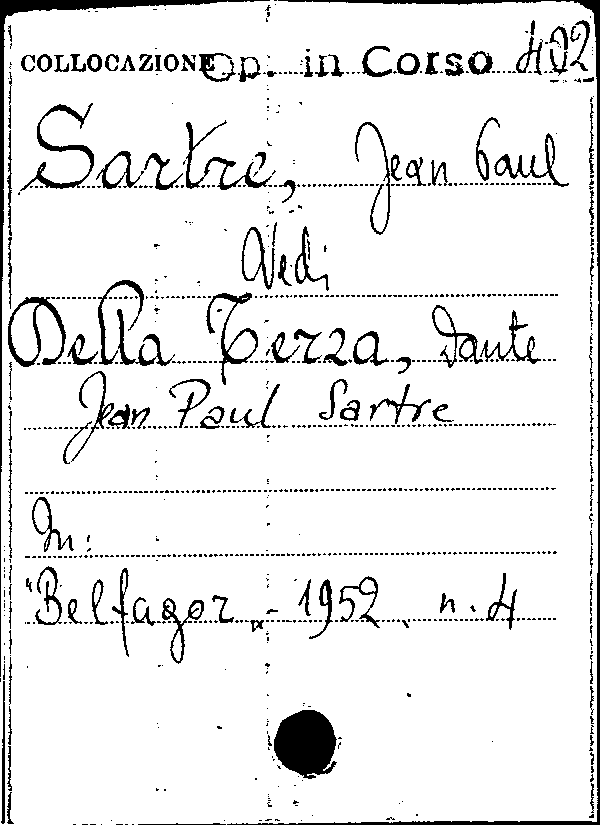 COLLOCAZIONE Op. in Corso 402
Sartre, Jean Paul
Vedi
Della Terza, Dante
Jean Paul Sartre
In:
"Belfagor„ - 1952. n. 4